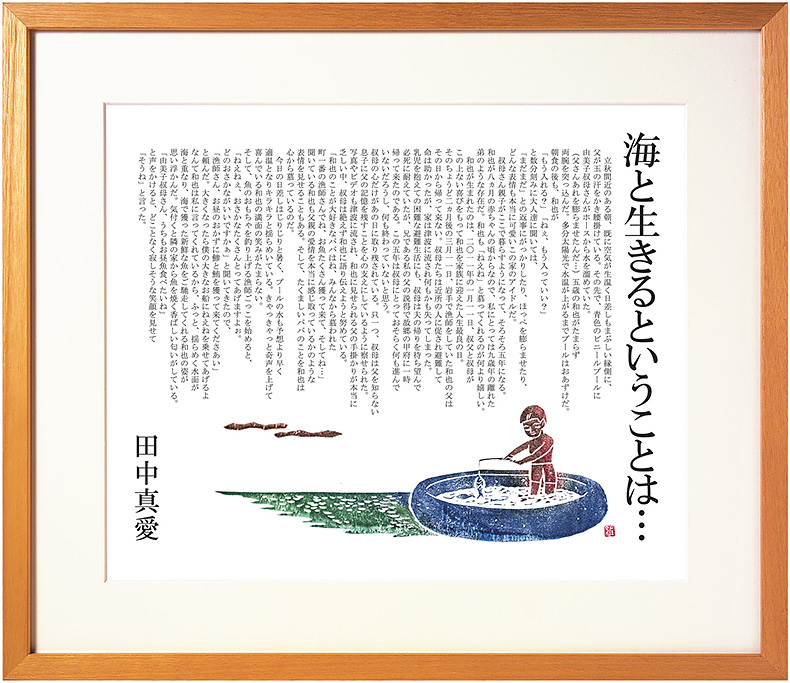 海と生きるということは…
立秋間近のある朝、既に空気が生温く日差しもまぶしい縁側に、
父が玉の汗をかき腰掛けている。その先で、青色のビニールプールに
由美子叔母さんがホースから水を溜めていた。
(父さんあれを膨らませたんだ…)五歳の和也がたまらず
両腕を突っ込んだ。多分太陽光で水温が上がるまでプールはおあずけだ。
朝食の後も、和也が
「もう入れる？」「ねえ、もう入っていい？」
と数分刻みに大人達に聞いては、
「まだまだ」との返事にがっかりしたり、ほっぺを膨らませたり、
どんな表情も本当に可愛いこの家のアイドルだ。
叔母さん親子がここで暮らすようになって、そろそろ五年になる。
和也が八ヵ月の赤ちゃんの頃からなので、私にとっては九歳年の離れた
弟のような存在だ。和也も「ねえね」と慕ってくれるのが何より嬉しい。
和也が生まれたのは、二〇一一年の一月一一日、叔父と叔母が
この上ない喜びをもって和也を家族に迎えた人生最良の日。
そのちょうど二ヵ月後の三月一一日、岩手で漁師をしていた和也の父は
その日から帰って来ない。叔母たちは近所の人に促され避難して
命は助かったが、家は津波に流され何もかも失ってしまった。
乳児を抱えての困難な避難生活にも、叔母は夫の帰りを待ち望んで
必死に耐えていたが、兄である私の父の説得で故郷の甲府に一時
帰って来たのである。この五年は叔母にとっておそらく何も進んで
いないだろうし、何も終わっていないと思う。
叔母の心だけがあの日に取り残されている。只一つ、叔母は父を知らない
息子に父の記憶を残すことを心の支えにしているように察せられた。
写真やビデオも津波に流され、和也に見せられる父の手掛かりが本当に
乏しい中、叔母は絶えず和也に語り伝えようと努めている。
「和也のことが大好きなパパはね、みんなから慕われた
町一番の漁師さんでね、お魚たくさん獲って来て、そしてね…」
聞いている和也も父親の愛情を本当に感じ取っているかのような
表情を見せることもある。そして、たくましいパパのことを和也は
心から慕っているのだ。
今日の日差しはじりじりと暑く、プールの水も予想より早く
適温となりキラキラと揺らめいている。きゃっきゃっと奇声を上げて
喜んでいる和也の満面の笑みがたまらない。
そして、魚のおもちゃを釣り上げる漁師ごっこを始めると、
「ねえねえ、おさかなたくさんとってあげますよぉ。
どのおさかながいいですかぁ」と聞いてきたので、
「漁師さん、お昼のおかずに鰺と鮪を獲って来てくださあい」
と頼んだ。「大きくなったら僕の大きなお船にねえねを乗せてあげるよ」
なんて和也は私に言ってくれているから、ふっと、揺らめく水面が
海と重なり、海で獲った新鮮な魚をご馳走してくれる和也の姿が
思い浮かんだ。気付くと隣の家から魚を焼く香ばしい匂いがしている。
「由美子叔母さん、うちもお昼魚食べたいね」
と声をかけると、どことなく寂しそうな笑顔を見せて
「そうね」と言った。
田中真愛